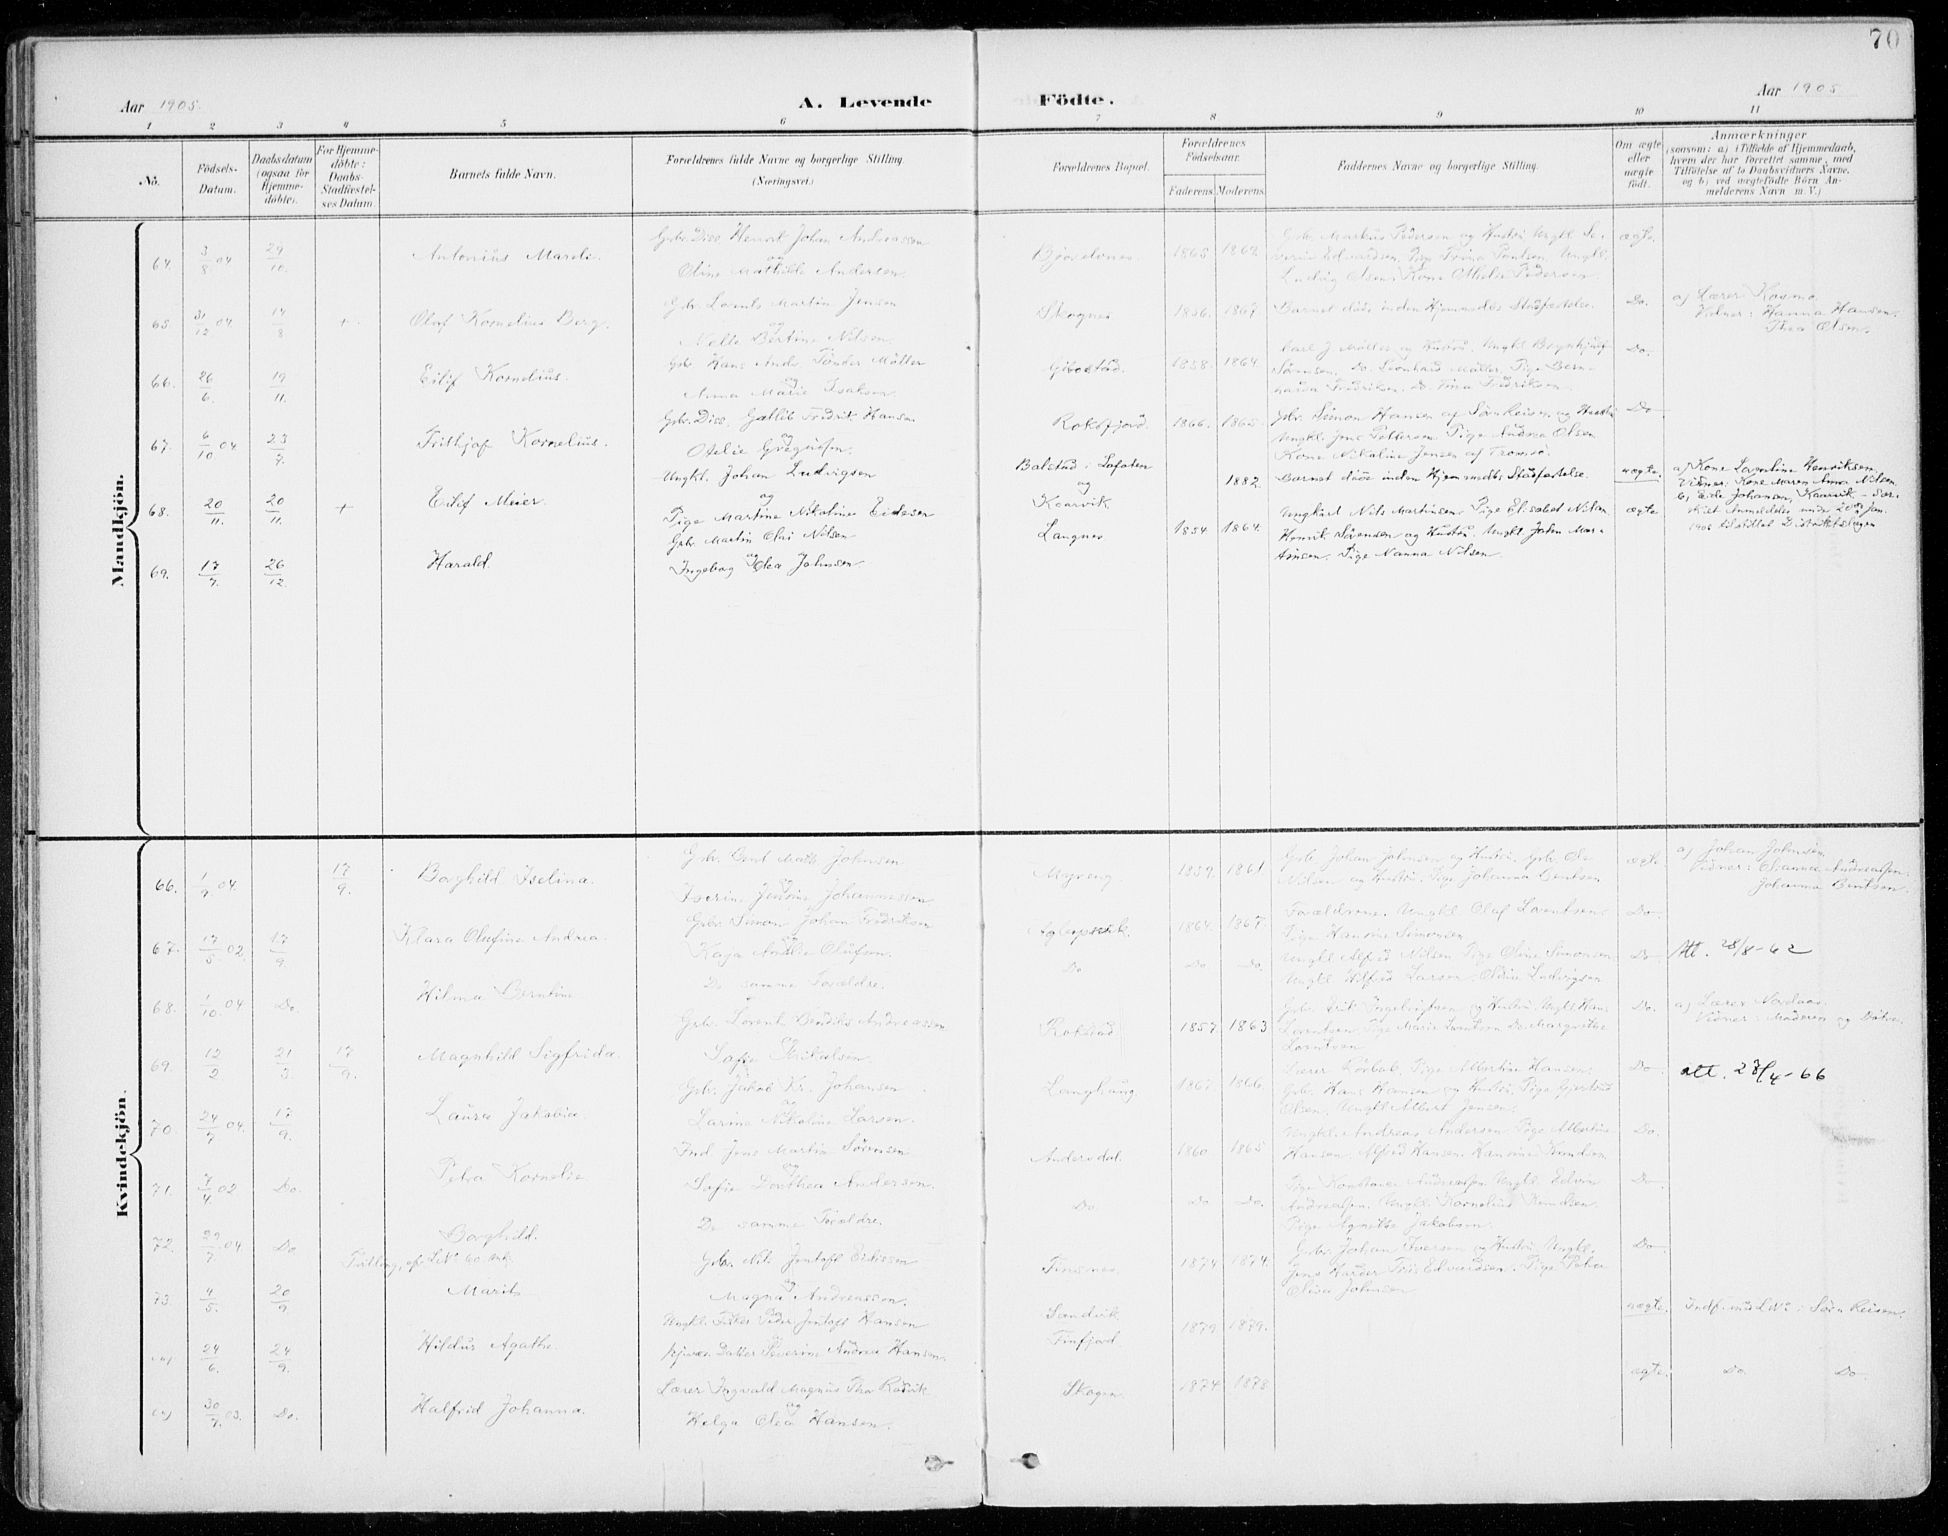 70
Aar 1905.
A. Levende
Födte.
Aar 1905
1 2 3 4 5 6 7 8 9 10 11
No.
Födsels-
Datum.
Daabsdatum
(ogsaa for
Hjemme-
döbte).
For Hjemme-
döbte:
Daabs-
Stadfæstel-
ses Datum.
Barnets fulde Navn.
Forældrenes fulde Navne og borgerlige Stilling.
(Næringsvei.)
Forældrenes Bopæl.
Forældrenes
Födselsaar.
Faderens. Moderens.
Faddernes Navne og borgerlige Stilling.
Om ægte
eller
uægte
födt.
Anmærkninger
(saasom: a) i Tilfælde af Hjemmedaab,
hvem der har forrettet samme, med
Tilföielse af to Daabsvidners Navne,
og b) ved uægtefödte Börn An-
melderens Navn m. V.)
Mandkjön.
64. 3/8 04 29/10.
Gbr. Diss. Henrik Johan Andreassen
og
Oline Mathilde Andersen.
1865 1862
Gbr. Markus Pedersen og Hustru. Ungkl. Se-
ægte.
65 31/12 04 17/8 + Olaf Kornelius Berg.
Gbr. Lorents Martin Jensen
og
Nelle Bertine Nilsen.
Skognes 1856. 1867
Barnet döde inden Hjemmedbs Stadfæstelse.
Do.
a) Lærer Kosmo.
Vidner: Hanna Hansen.
Thea Olsen.
66. 26/6. 19/11. Eilif Kornelius.
Gbr. Hans Andr. Tönder Möller
og
Anna Marie Isaksen
Gibostad. 1858. 1864.
Carl J. Möller og Hustru. Ungkl
Sörensen, Do. Leonhard Möller, Pige Ber-
Fredriksen. Do. Tina Fredriksen.
Do.
67. 6/10 04 23/7. Frithjof Kornelius.
Gbr. Diss. Gotlib Fredrik Hansen
og
Rossfjord. 1866. 1865.
Gbr. Simon Hansen af Sörreisen og Hustru
Ungkl. Jens Pettersen. Pige Andrea Olsen
Kone Nikoline Jensen af Tromsö.
Do
68. 20/11. 20/11. + Eilif Meier.
Ungkl. Johan Ludvigsen
og
Pige Martine Nikoline Eidesen
Balstad i Lofoten
og
Kaarvik
1882
Barnet döde inden Hjemmedbs Stadfæstelse.
uægte.
a) Kone Leventine Henriksen.
Vidner: Kone Maren Anna Nilsen.
b) Eide Johansen, Kaarvik – Sær-
skilt Anmeldelse under 20de Jan.
1906 tilstillet Distriktslægen
69. 17/7. 26/12. Harald.
Gbr. Martin Olai Nilsen
og
Ingeborg Olea Johnsen
Langnes 1854 1864.
Ungkarl Nils Martinsen. Pige Elisabet Nilsen
Henrik Sörensen og Hustru. Ungkl. Johan Mar-
tinsen. Pige Nanna Nilsen.
ægte
Kvindekjön.
66. 1/9 04. 17/9. Borghild Iselina.
Gbr. Bent Math. Johnsen
og
Iserin Jensine Johannessen
1859 1861.
Gbr. Johan Johnsen og Hustru. Gbr. Ole
Nilsen og Hustru. Pige Johanna Bentsen
ægte.
a) Johan Johnsen.
Johanna Bentsen.
67. 17/5. 02. 17/9. Klara Olufine Andrea.
Gbr. Simon Johan Fredriksen
og
Kaja Amalie Olufsen.
1864. 1867.
Forældrene. Ungkl. Olaf Lorentsen
Pige Hansine Simonsen
Do
Att. 28/8-62
68. 1/10. 04 Do. Hilma Berntine
De samme Forældre.
Do Do Do.
Ungkl. Alfred Nilsen. Pige Oline Simonsen
Ungkl. Hilfred Larsen. Oldine Ludvigsen
Do
69. 12/2 21/3. 17/9. Magnhild Sigfrida.
Gbr. Lorent Bendiks Andreassen
og
Sofie Mikalsen.
Rokstad 1857 1863
Gbr. Erik Ingebrigtsen og Hustru. Ungkl. Hans
Lorentsen. Pige Marie Lorentsen Do Margrethe
Lorentsen
Do.
a) Lærer Nordaas.
Vidner: Moderen og Datter.
70. 24/7 04. 17/9. Laura Jakobine.
Gbr. Jakob Kr. Johansen
og
Larine Nikoline Larsen.
Langhaug 1867. 1866
Lærer Rörbak. Pige Albertine Hansen.
Gbr. Hans Hansen og Hustru. Pige Gjertrud
Olsen. Ungkl. Albert Jensen.
Do.
att. 23/4-66
71. 7/4. 02 Do. Petra Kornelie
Ind. Jens Martin Sörensen
og
Sofie Dorthea Andersen.
Andersdal. 1860 1865
Ungkl. Andreas Andersen. Pige Albertine
Hansen. Alfred Hansen. Hansine Knudsen
Do.
72. 29/7 04. Do Borghild.
De samme Forældre.
Do. Do Do.
Pige Konstanse Andreassen. Ungkl. Edvin
Andreassen. Ungkl. Kornelius Knudsen
Pige Agnethe Jakobsen.
Do
Tvilling, cfr. LNo 60 Mk.
73. 4/5. 20/9. Marit
Gbr. Nil. Jentoft Eidissen
og
Magna Andreassen.
Finsnes 1874 1874.
Gbr. Johan Iversen og Hustru. Ungkl.
Jens Edvardsen. Pige Petra
Olisa Johnsen
Do
24/6. 24/9. Hildur Agathe.
Ungkl. Fisker Peder Jentoft Hansen
og
Datter Severine Andrea Hansen.
Sandvik
Finfjord
1879 1879.
uægte.
Indf. uds LNo i Sörreisen.
30/7. 03. Do. Halfrid Johanna.
Lærer Ingvald Magnus Thor Rödvik
og
Helga Olea Hansen.
Skogen. 1874 1878
ægte.
Do. Do